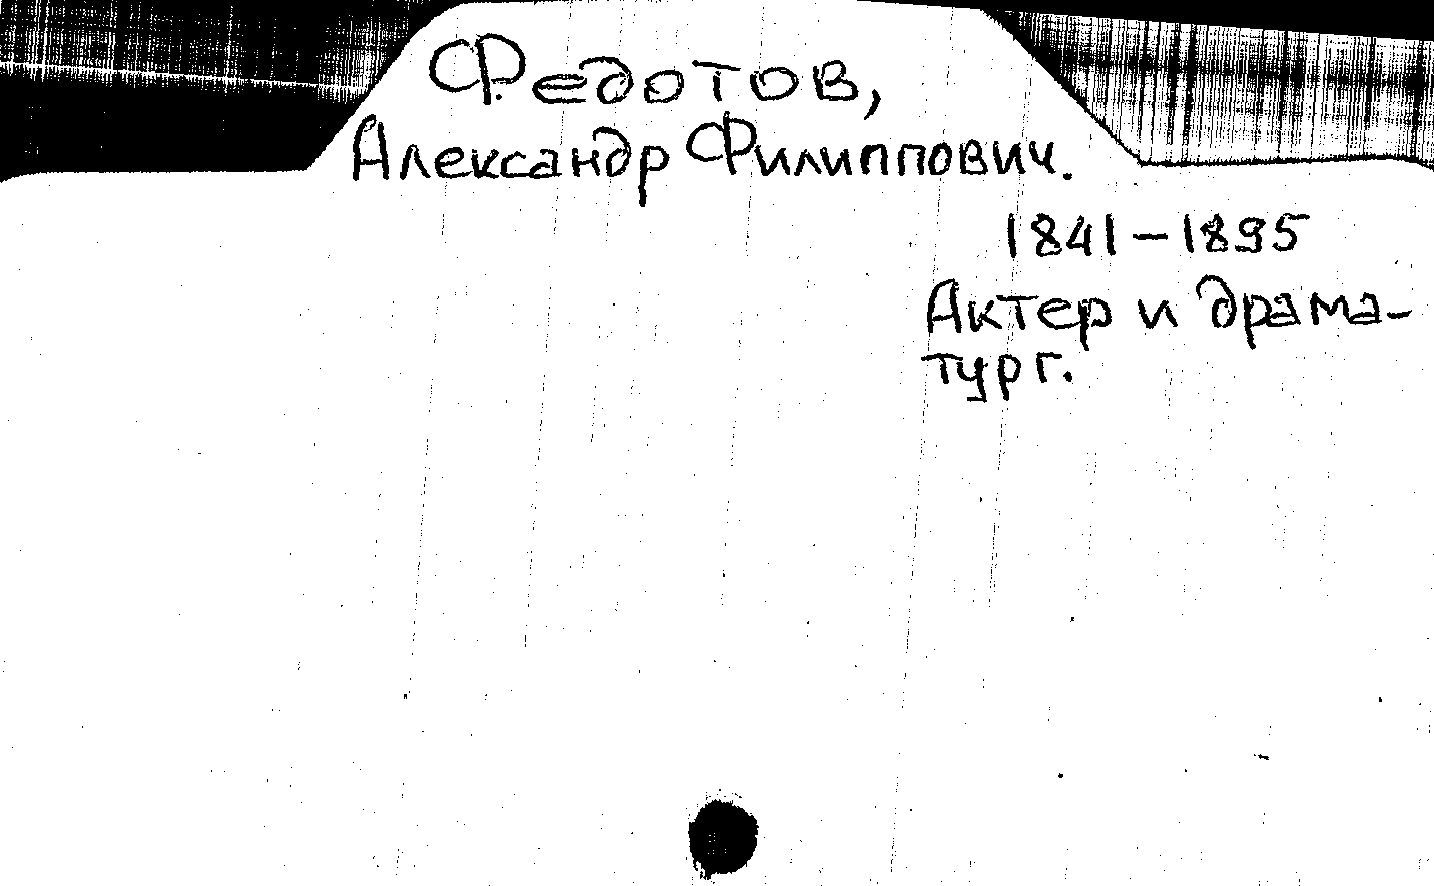 Федотов,
Александр Филиппович.
1841-1895
Актер и драма-
тург.